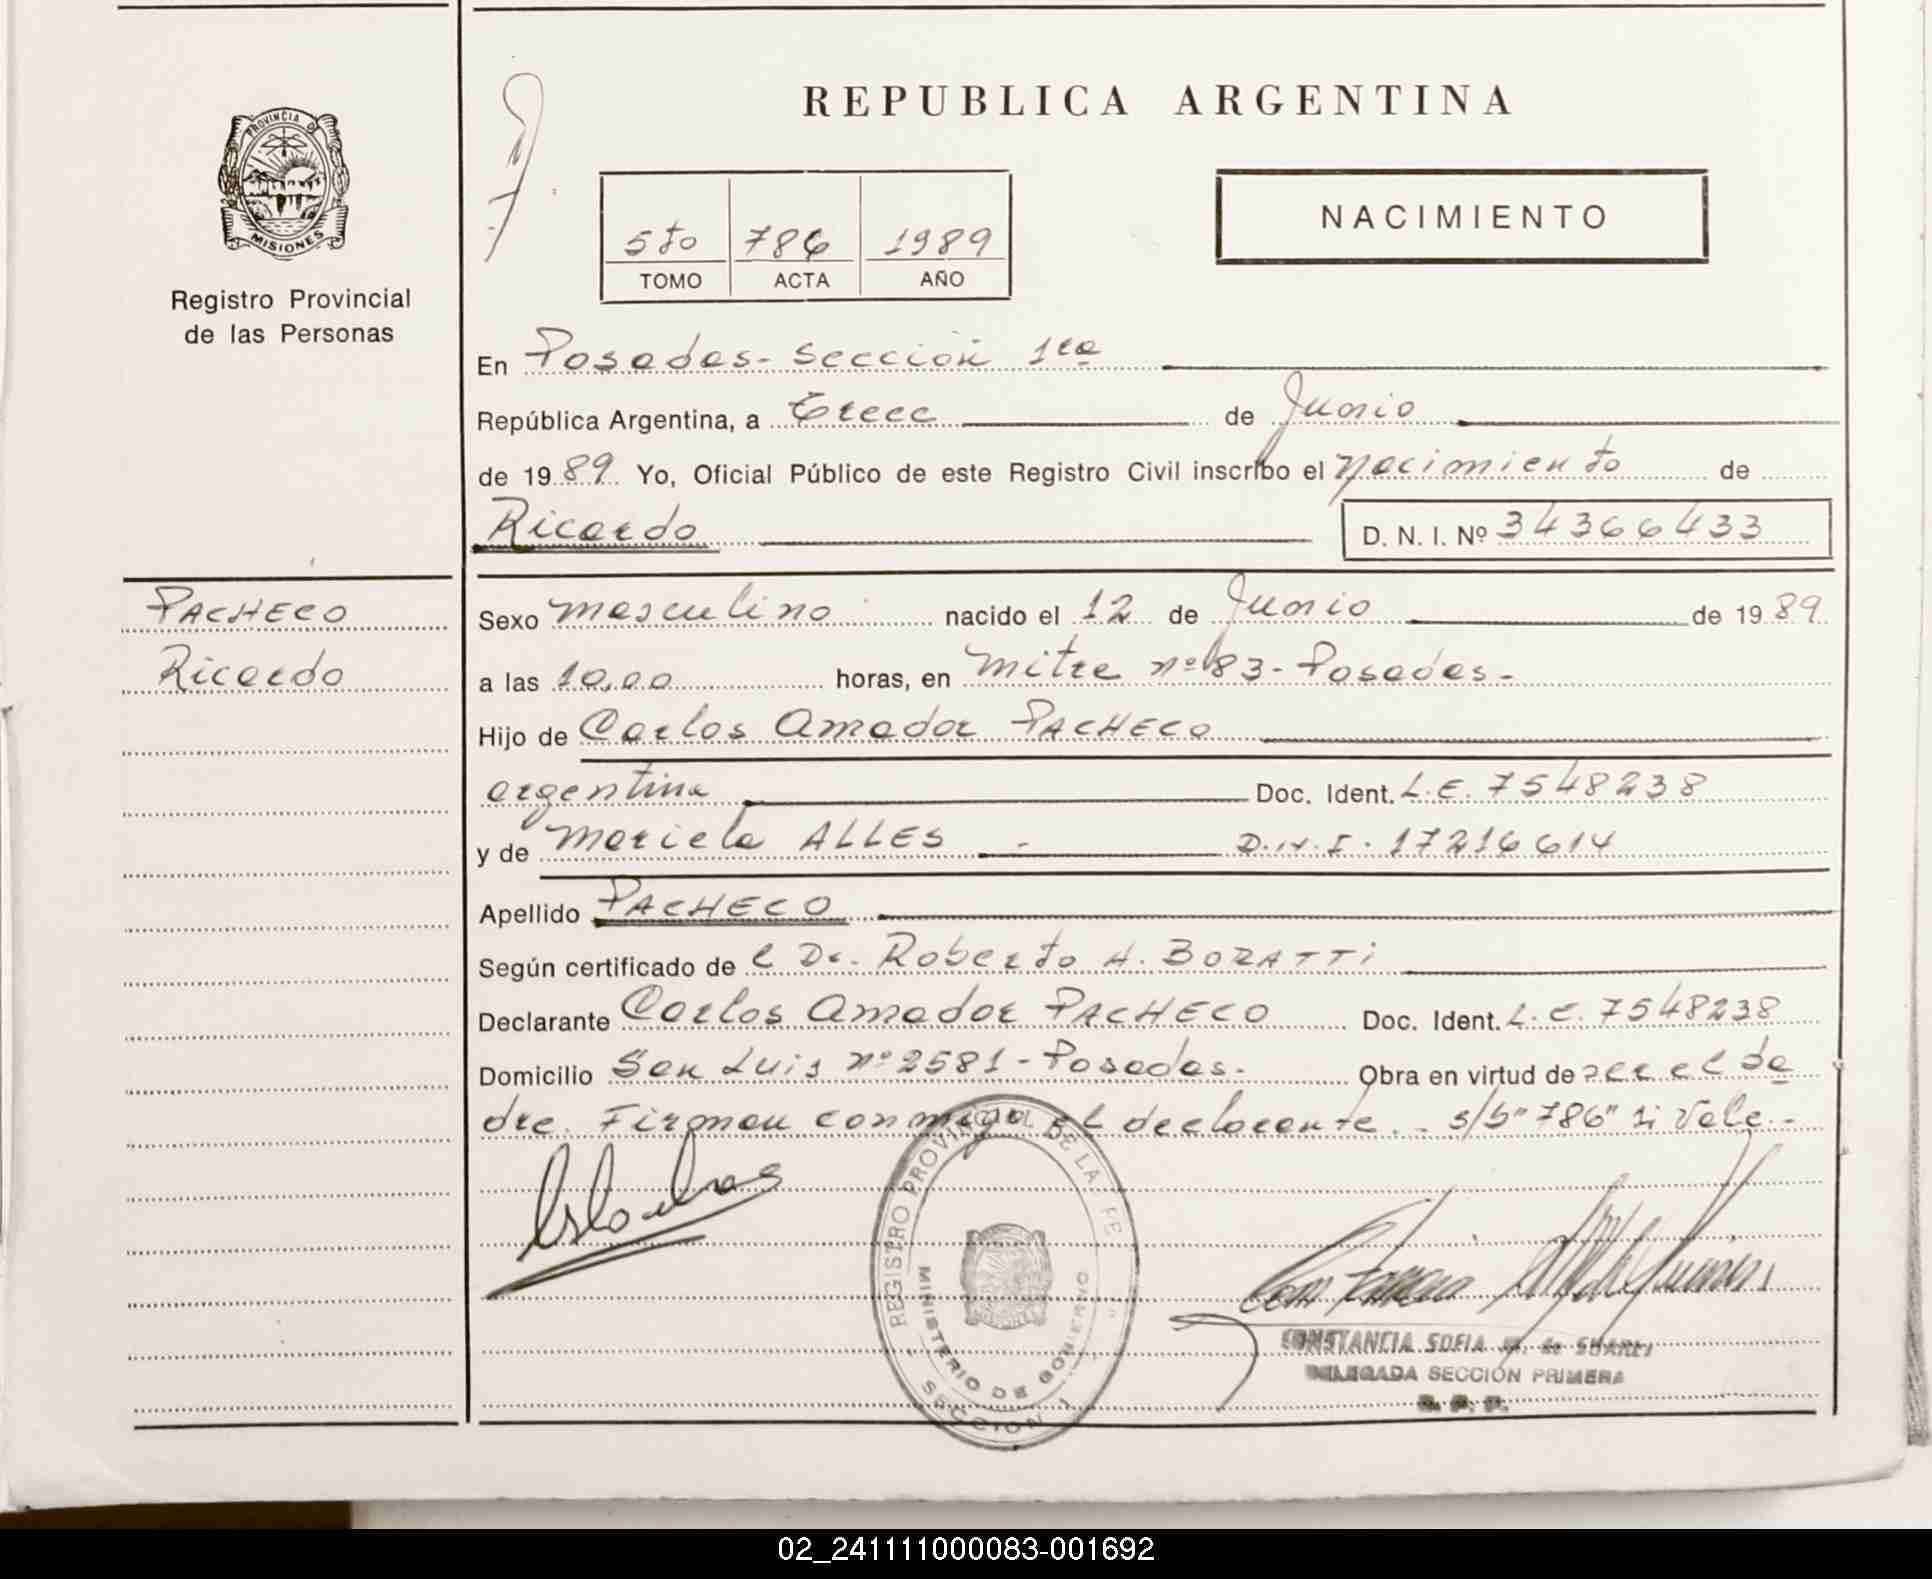 REPUBLICA ARGENTINA
PROVINCIA DE
MISIONES
Registro Provincial
de las Personas
NACIMIENTO
5to 786 1989
TOMO ACTA AÑO
En Posadas - Sección 1ra
República Argentina, a Trece de Junio
de 1989. Yo, Oficial Público de este Registro Civil inscribo el nacimiento de
Ricardo D. N. I. Nº 34366433
PACHECO
Ricardo
Sexo masculino nacido el 12 de Junio de 1989.
a las 10,00 horas, en Mitre nº 83 - Posadas -
Hijo de Carlos Amador PACHECO
argentina Doc. Ident. L.E. 7548238
y de Mariela ALLES - D.N.I. 17216614
Apellido PACHECO
Según certificado de l Dr. Roberto H. BORATTi
Declarante Carlos Amador PACHECO Doc. Ident. L.E. 7548238
Domicilio San Luis nº 2581 - Posadas. Obra en virtud de ser el Pa
dre. Firman conmigo el declarante. - s/b "786" si Vale. -
REGISTRO PROVINCIAL DE LAS PE
MINISTERIO DE GOBIERNO
SECCION 1
CONSTANCIA SOFIA M. de SUAREZ
DELEGADA SECCIÓN PRIMERA
R. P. P.
02_241111000083-001692